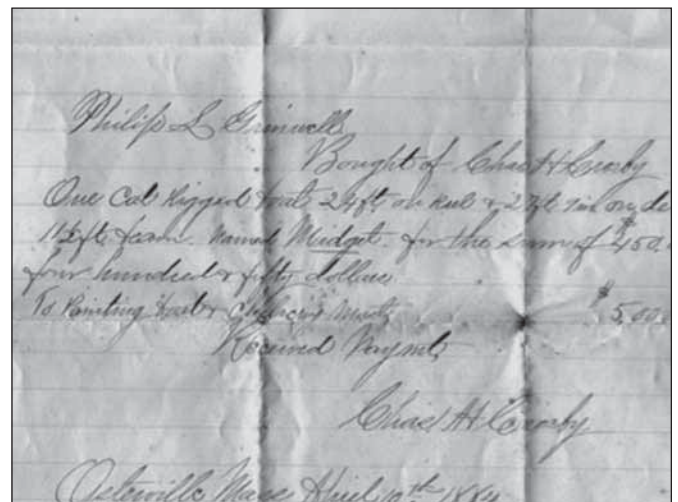 Philip L Grinnell
Bought of Chas H Crosby
One Cat Rigged boat 24ft on keel & 27ft on de
11½ft beam named Midget for the sum of $450.
four hundred & fifty dollars
To Painting boat & mast $5.00
Received Payment
Chas H Crosby
Osterville Mass April 10th 1884